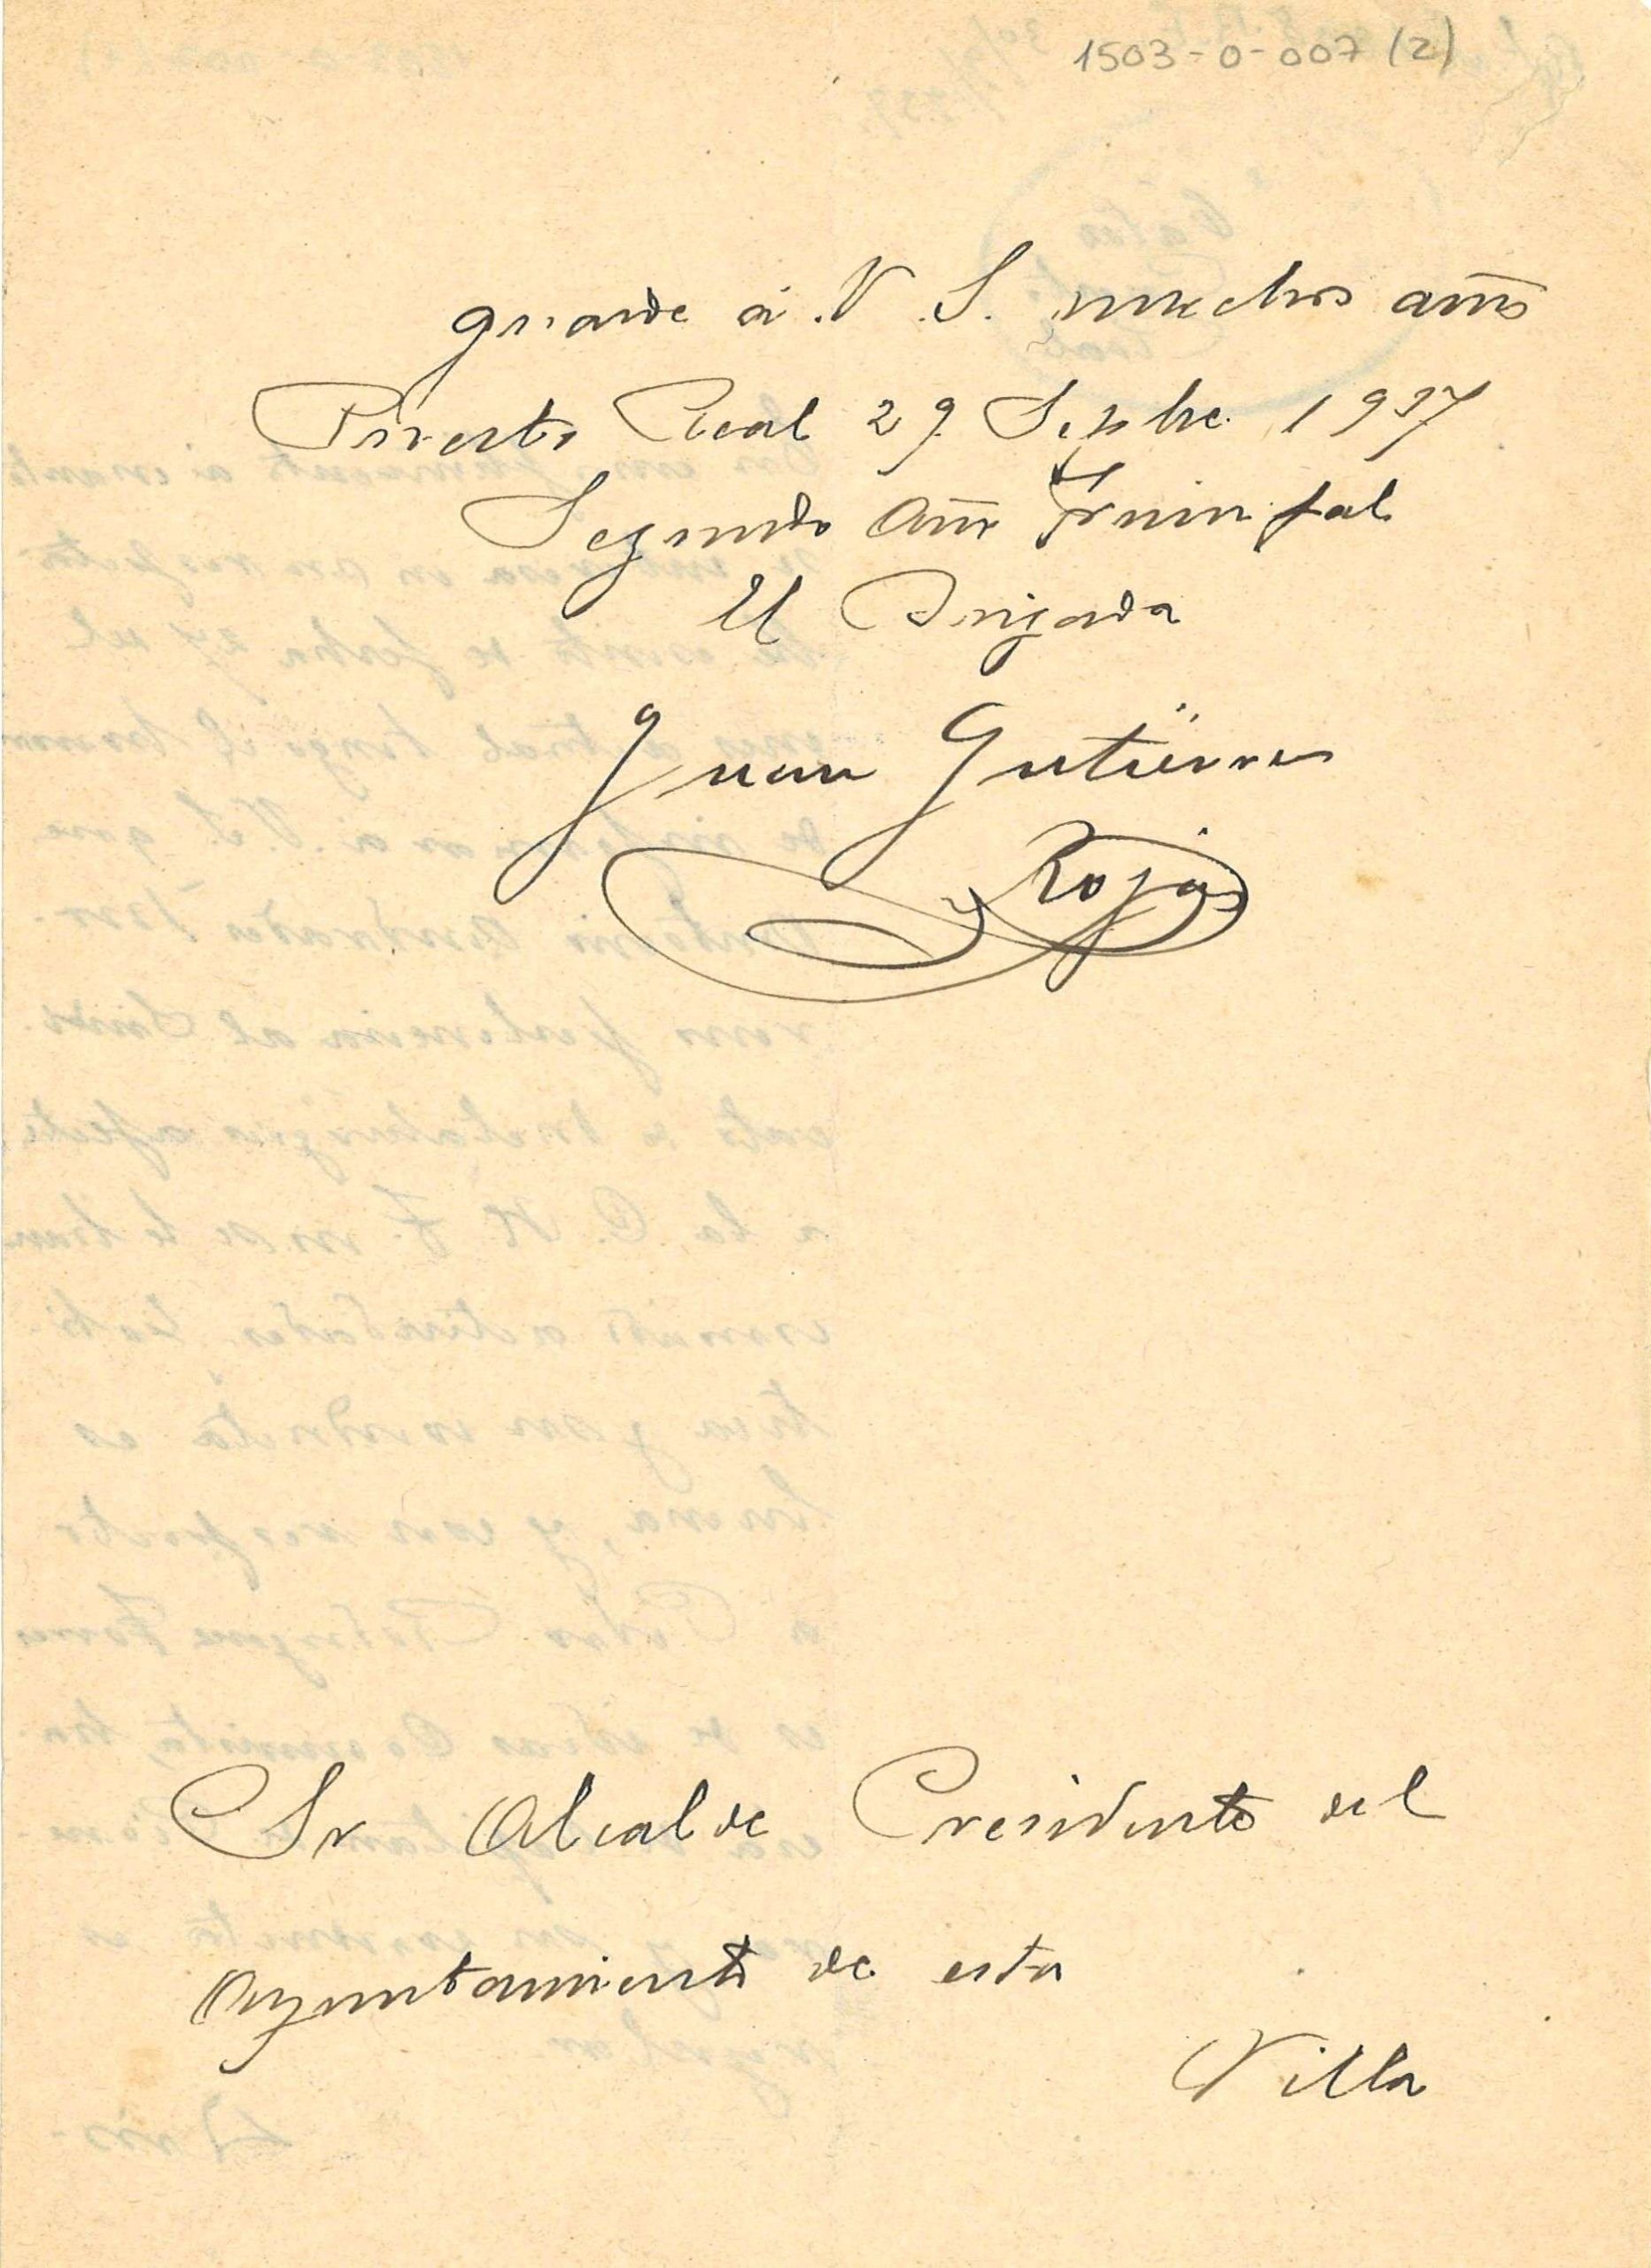 1503-0-007 (2)
guarde á V.S. muchos años
Puerto Real 29 Sepbre. 1937
Segundo Año Triunfal
El Brigada
Juan Gutierrez
Rojas
Sr Alcalde Presidente del
Ayuntamiento de esta
Villa